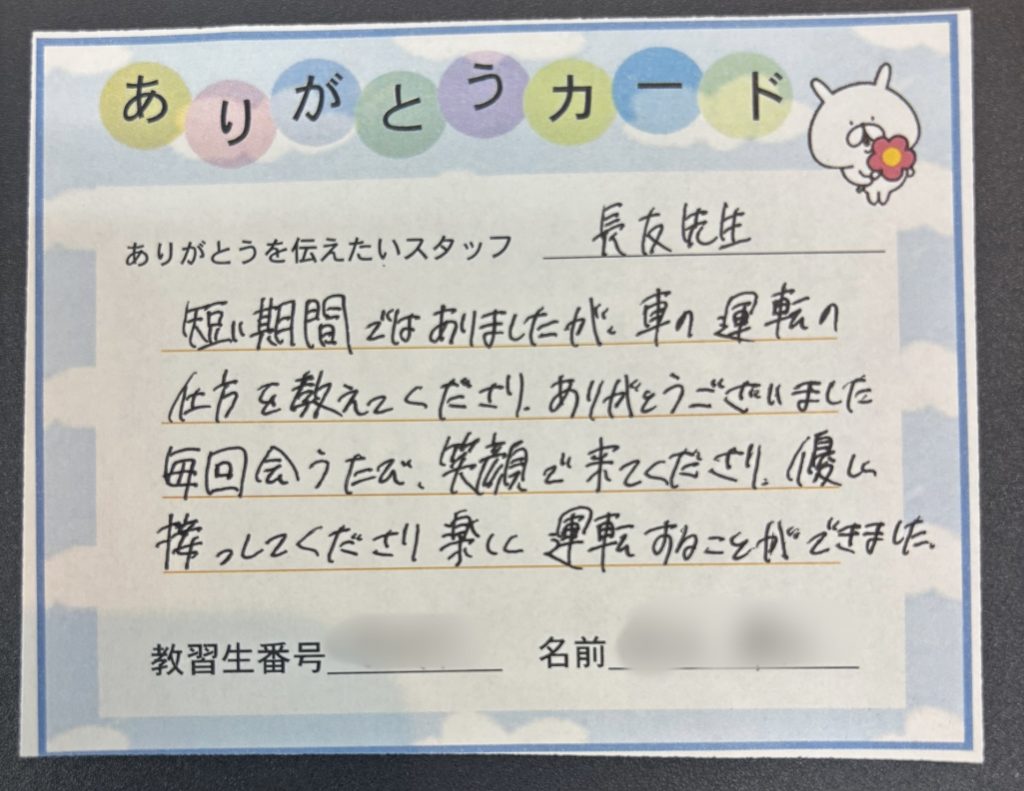 ありがとうカード
ありがとうを伝えたいスタッフ 長友先生
短い期間ではありましたが、車の運転の
仕方を教えてくださり、ありがとうございました
毎回会うたび、笑顔で来てくださり、優しく
接っしてくださり楽しく運転することができました。
教習生番号 名前